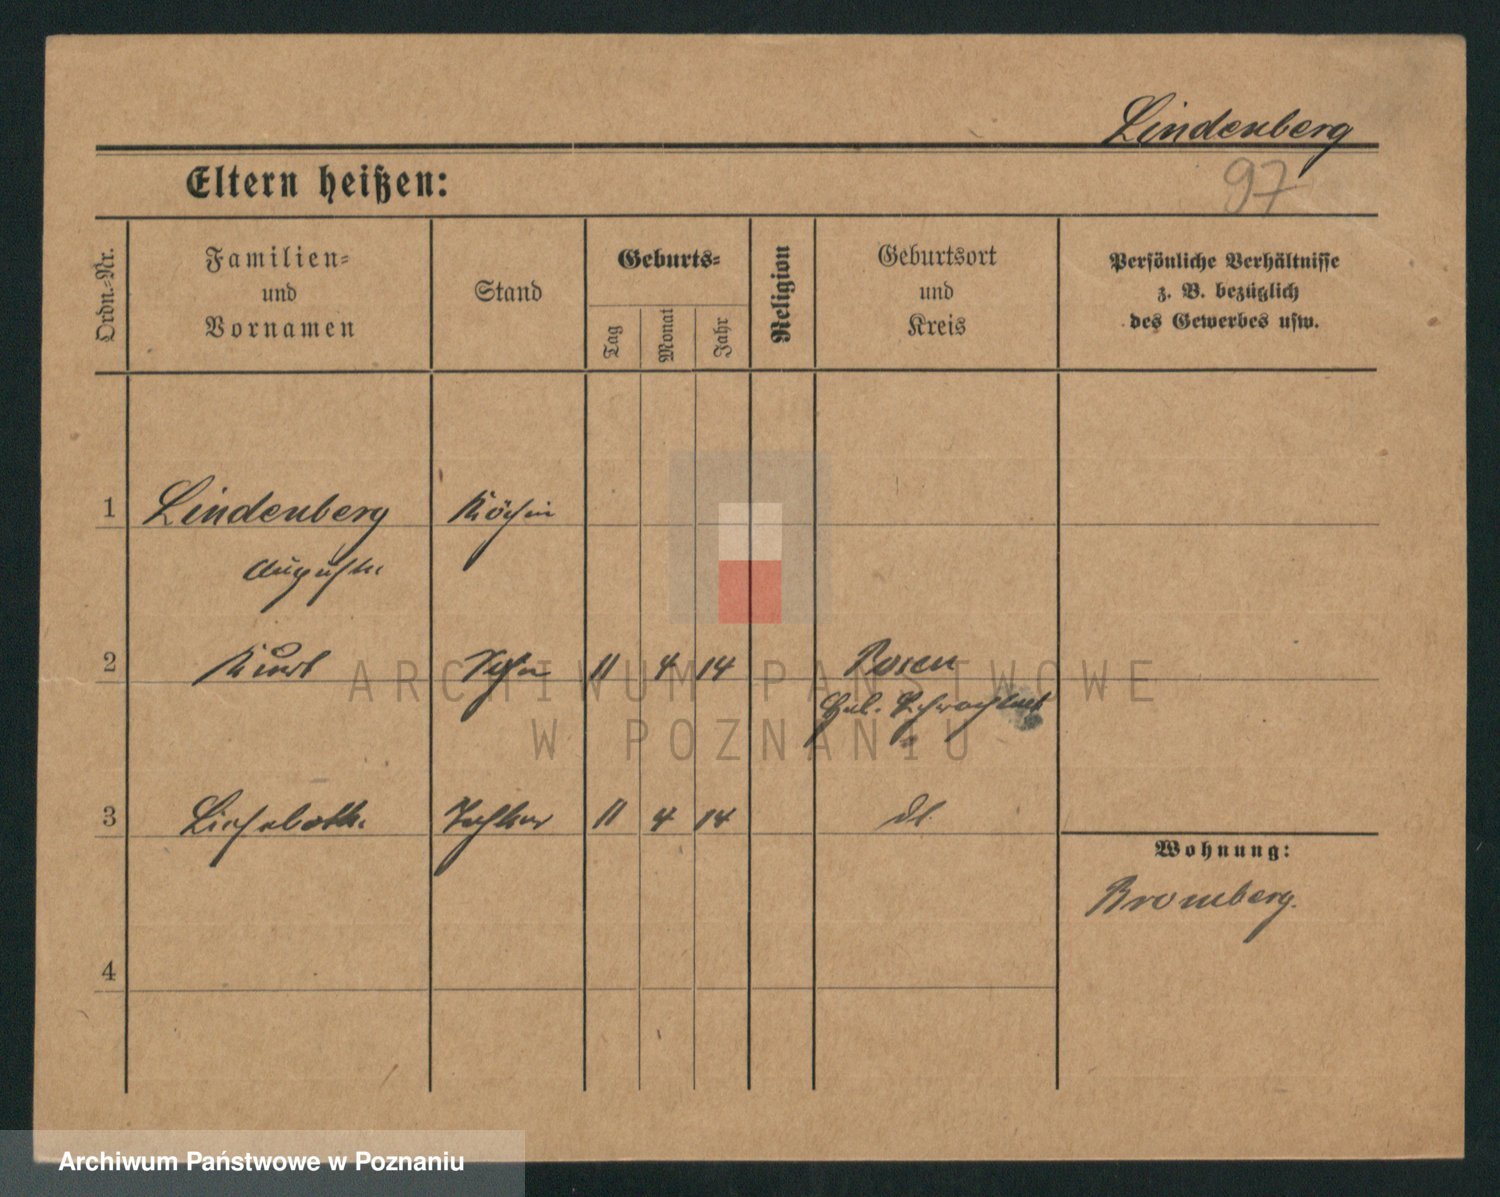 Lindenberg
97
Eltern heißen:
Ordn.-Nr.
Familien-
und
Vornamen
Stand
Geburts-
Tag
Monat
Jahr
Religion
Geburtsort
und
Kreis
Persönliche Verhältnisse
z. B. bezüglich
des Gewerbes usw.
1 Lindenberg Köchin
Auguste
2 Kurt Sohn 11 4 14 Posen
3 Lieselotte Tochter 11 4 14
Wohnung:
Bromberg.
4
ARCHIWUM PAŃSTWOWE
W POZNANIU
Archiwum Państwowe w Poznaniu